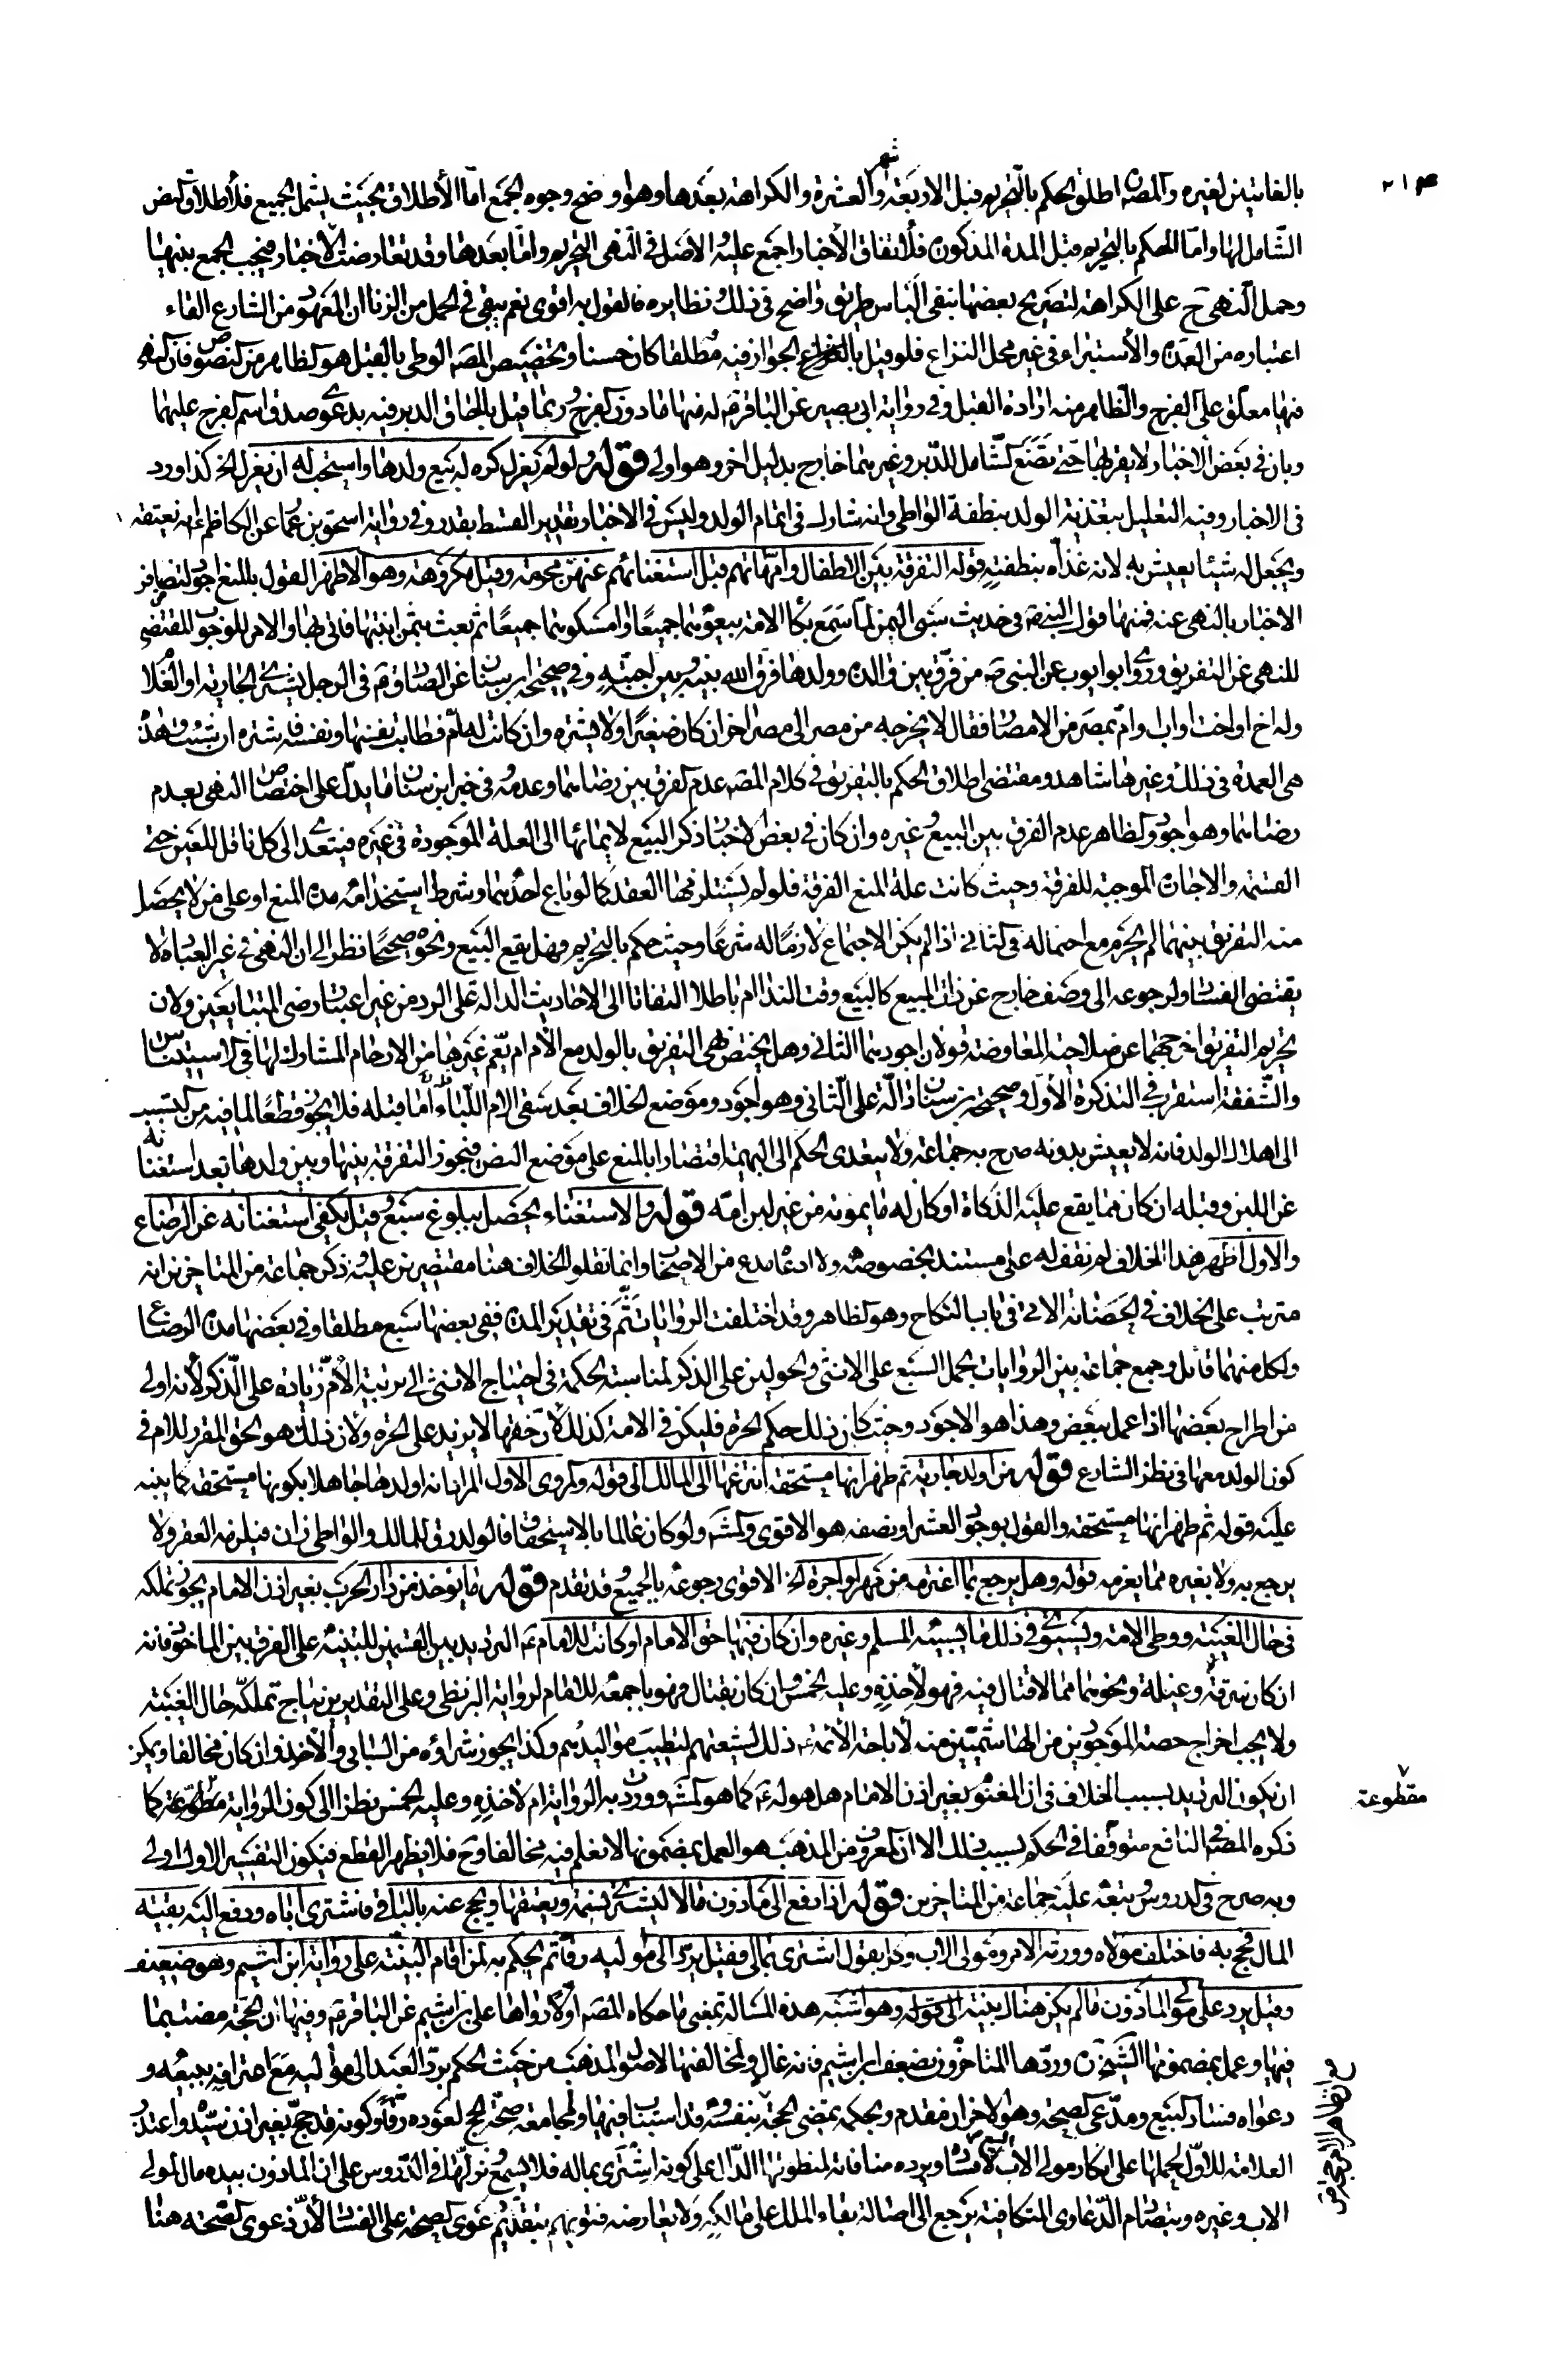 ٢١۴
بالغايتين لغيره والمصنف اطلق الحكم بالتحريم قبل الاربعة اشهر والعشرة والكراهة بعدها وهو اوضح وجوه الجمع اما الأطلاق بحيث يشمل الجميع فلأطلاق النص
الشامل لها واما الحكم بالتحريم قبل المدة المذكورة فلأتفاق الأخبار اجمع عليه والاصل في النهي التحريم واما بعدها وقد تعارضت الأخبار فيجب الجمع بينها
وحمل النهي ح على الكراهة لتصريح بعضها بنفي البأس طريق واضح في ذلك ونظايره فالقول به اقوى نعم يبقى في الحمل من الزنا ان المعهود من الشارع الغاء
اعتباره من العدة والأستبراء في غير محل النزاع فلو قيل بالجواز فيه مطلقا كان حسنا وتخصيص المصنف الوطي بالقبل هو الظاهر من النصوص فان النهي
فيها معلق على الفرج والظاهر منه ارادة القبل وفي رواية ابي بصير عن الباقر م له منها ما دون الفرج وربما قيل بالحاق الدبر فيه بدعوى صدق اسم الفرج عليهما
وبان في بعض الاخبار لا يقربها حتى تضع الشامل للدبر وغيرهما خارج بدليل اخر وهو اولى قوله ولو لم يعزل كره له بيع ولدها واستحب له ان يعزل الخ كذا ورد
في الاخبار وفيه التعليل بتغذية الولد بنطفة الواطي وانه شارك في اتمام الولد وليس في الاخبار تقدير القسط بقدر وفي رواية اسحق بن عمار عن الكاظم ع انه يعتقه
ويجعل له شيئا يعيش به لانه غذاه بنطفته قوله التفرقة بين الاطفال وامهاتهم قبل استغنائهم عنهن محرمة وقيل مكروهة وهو الاظهر القول بالمنع اجود لتضافر
الاخبار بالنهي عنه فمنها قول النبي ص في حديث سبي اليمن لما سمع بكاء الامة بيعوهما جميعا او امسكوهما جميعا ثم بعث بثمن ابنتها فاتي بها والامر للوجوب المقتضي
للنهي عن التفريق وروى ابو ايوب عن النبي ص من فرق بين والدة وولدها فرق الله بينه وبين احبته وفي صحيحة ابن سنان عن الصادق م في الرجل يشتري الجارية او الغلام
وله اخ او اخت او اب او ام بمصر من الامصار فقال لا يخرجه من مصر الى مصر اخر ان كان صغيرا ولا يشتره وان كانت له ام فطابت نفسها ونفسه فاشتره ان شئت وهذه
هي العمدة في ذلك وغيرها شاهد ومقتضى اطلاق الحكم بالتفريق في كلام المصنف عدم الفرق بين رضاهما وعدمه وفي خبر ابن سنان ما يدل على اختصاص النهي بعدم
رضاهما وهو اجود والظاهر عدم الفرق بين البيع وغيره وان كان في بعض الاخبار ذكر البيع لايمائها الى العلة الموجودة في غيره فيتعدى الى كل ناقل للعين حتى
القسمة والاجارة الموجبة للفرقة وحيث كانت علة المنع الفرقة فلو لم يستلزمها العقد كما لو باع احدهما وشرط استخدامه مدة المنع او على من لا يحصل
منه التفريق بينهما لم يحرم مع احتماله في الثاني اذا لم يكن الاجتماع لازما له شرعا وحيث حكم بالتحريم فهل يقع البيع ونحوه صحيحا نظرا الى ان النهي في غير العبادة لا
يقتضي الفساد ولرجوعه الى وصف خارج عن ذات المبيع كالبيع وقت النداء ام باطلا التفاتا الى الاحاديث الدالة على الرد من غير اعتبار رضى المتبايعين ولان
تحريم التفريق اخرجهما عن صلاحية المعاوضة قولان اجودهما الثاني وهل يختص نهي التفريق بالولد مع الأم ام يعم غيرها من الارحام المشاركة لها في الاستيناس
والشفقة استقرب في التذكرة الأول وصحيحة ابن سنان دالة على الثاني وهو اجود وموضع الخلاف بعد سقي الام اللباء اما قبله فلا يجوز قطعا لما فيه من التسبب
الى اهلاك الولد فانه لا يعيش بدونه صرح به جماعة ولا يتعدى الحكم الى البهيمة اقتصارا بالمنع على موضع النص فيجوز التفرقة بينها وبين ولدها بعد استغنائه
عن اللبن وقبله ان كان مما يقع عليه الذكاة او كان له ما يمونه من غير لبن امه قوله والاستغناء يحصل ببلوغ سبع وقيل يكفي استغنائه عن الرضاع
والاول اظهر هذا الخلاف لم نقف له على مستند بخصوصه ولا ادعاه مدع من الاصحاب وانما نقلوا الخلاف هنا مقتصرين عليه وذكر جماعة من المتاخرين انه
مترتب على الخلاف في الحضانة الاتي في باب النكاح وهو الظاهر وقد اختلفت الروايات ثم في تقدير المدة ففي بعضها سبع مطلقا وفي بعضها مدة الرضاع
ولكل منهما قائل وجمع جماعة بين الروايات بحمل السبع على الانثى والحولين على الذكر لمناسبة الحكمة في احتياج الانثى الى تربية الأم زيادة على الذكر لأنه اولى
من اطراح بعضها اذا عمل ببعض وهذا هو الاجود وحيث كان ذلك حكم الحرة فليكن في الامة كذلك لان حقها لا يزيد على الحرة ولان ذلك هو الحق المقرر للام في
كون الولد معها في نظر الشارع قوله من اولد جارية ثم ظهر انها مستحقة انتزعها المالك الى قوله والمروي الاول المراد انه اولدها جاهلا بكونها مستحقة كما ينبه
عليه قوله ثم ظهر انها مستحقة والقول بوجوب العشر او نصفه هو الاقوى والاشهر ولو كان عالما بالاستحقاق فالولد رق للمالك والواطي زان فيلزمه العقر ولا
يرجع به ولا بغيره مما يغرمه قوله وهل يرجع بما اغترمه من مهر او اجرة الخ الاقوى رجوعه بالجميع وقد تقدم قوله ما يؤخذ من دار الحرب بغير اذن الامام يجوز تملكه
في حال الغيبة ووطي الامة ويستوي في ذلك ما يسبيه المسلم وغيره وان كان فيها حق الامام او كانت للامام ثم الترديد بين القسمين للتنبيه على الفرق بين الماخوذ فانه
ان كان سرقة وغيلة ونحوهما مما لا قتال فيه فهو لآخذه وعليه الخمس وان كان بقتال فهو باجمعه للامام لرواية البزنطي وعلى التقديرين يباح تملكه حال الغيبة
ولا يجب اخراج حصة الموجودين من الهاشميين منه لأباحة الأئمة ع ذلك لشيعتهم لتطيب مواليدهم وكذا يجوز شراؤه من السابي والآخذ وان كان مخالفا ويمكن
ان يكون الترديد بسبب الخلاف في ان المغنوم بغير اذن الامام هل هو له ع كما هو المشهور ووردت به الرواية ام لآخذه وعليه الخمس نظرا الى كون الرواية مقطوعة كما
مقطوعة
ذكره المصنف في النافع متوقفا في الحكم بسبب ذلك الا ان المعروف من المذهب هو العمل بمضمونها لا نعلم فيه مخالفا وح فلا يظهر القطع فيكون التفسير الاول اولى
وبه صرح في الدروس وتبعه عليه جماعة من المتاخرين قوله اذا دفع الى مأذون مالا ليشتري نسمة ويعتقها ويحج عنه بالباقي فاشترى اباه ودفع اليه بقية
المال فحج به فاختلف مولاه وورثة الامر ومولى الاب وكل يقول اشترى بمالي فقيل يرد الى مواليه رقا ثم يحكم به لمن اقام البينة على رواية ابن اشيم وهو ضعيف
وقيل يرد على مولى المأذون ما لم يكن هناك بينة الى قوله وهو اشبه هذه المسالة بمعنى ما حكاه المصنف اولا رواها علي بن اشيم عن الباقر م وفيها ان الحجة مضت بما
فيها وعمل بمضمونها الشيخ وردها المتاخرون بضعف ابن اشيم فانه غال ولمخالفتها لاصول المذهب من حيث الحكم برد العبد الى مواليه مع اعترافه ببيعه و
دعواه فساد البيع ومدعي الصحة وهو الاخران مقدم وبحكمه بمضي الحجة بنفسه قد استناب فيها ولمجامعة صحة الحج لعوده رقا وكونه قد حج بغير اذن سيده واعتذر
العلامة للاول بحملها على انكار مولى الاب البيع لا فساده ويرده منافاته لمنطوقها الدال على كونه اشترى بماله فلا يسمع نزلها في الدروس على ان المأذون بيده مال لمولى
الاب وغيره وبتصادم الدعاوى المتكافئة يرجع الى اصالة بقاء الملك على مالكه ولا يعارضه فتويهم بتقديم دعوى الصحة على الفساد لأن دعوى الصحة هنا